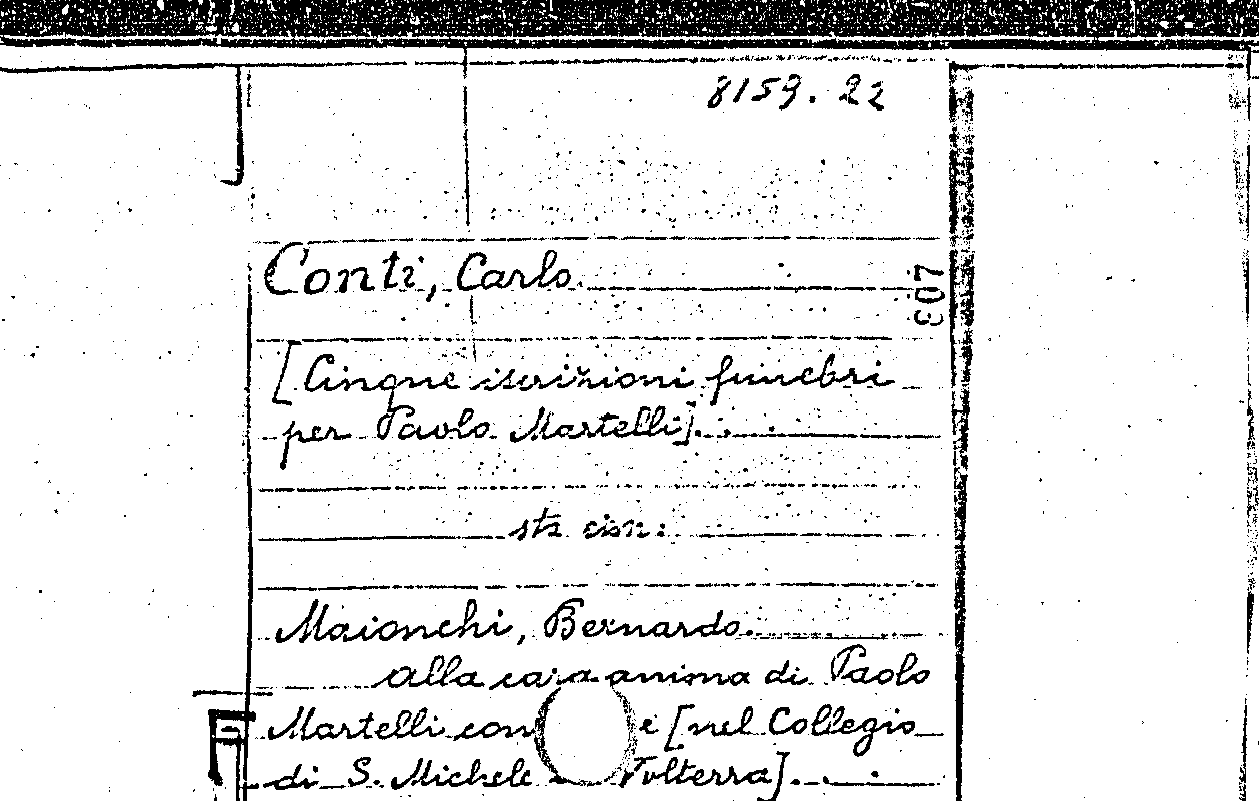 8159.22
Conti, Carlo.
307
[Cinque iscrizioni funebri
per Paolo Martelli]...
sta con:
Maionchi, Bernardo.
Alla cara anima di Paolo
Martelli con i [nel Collegio
di S. Michele Volterra]...